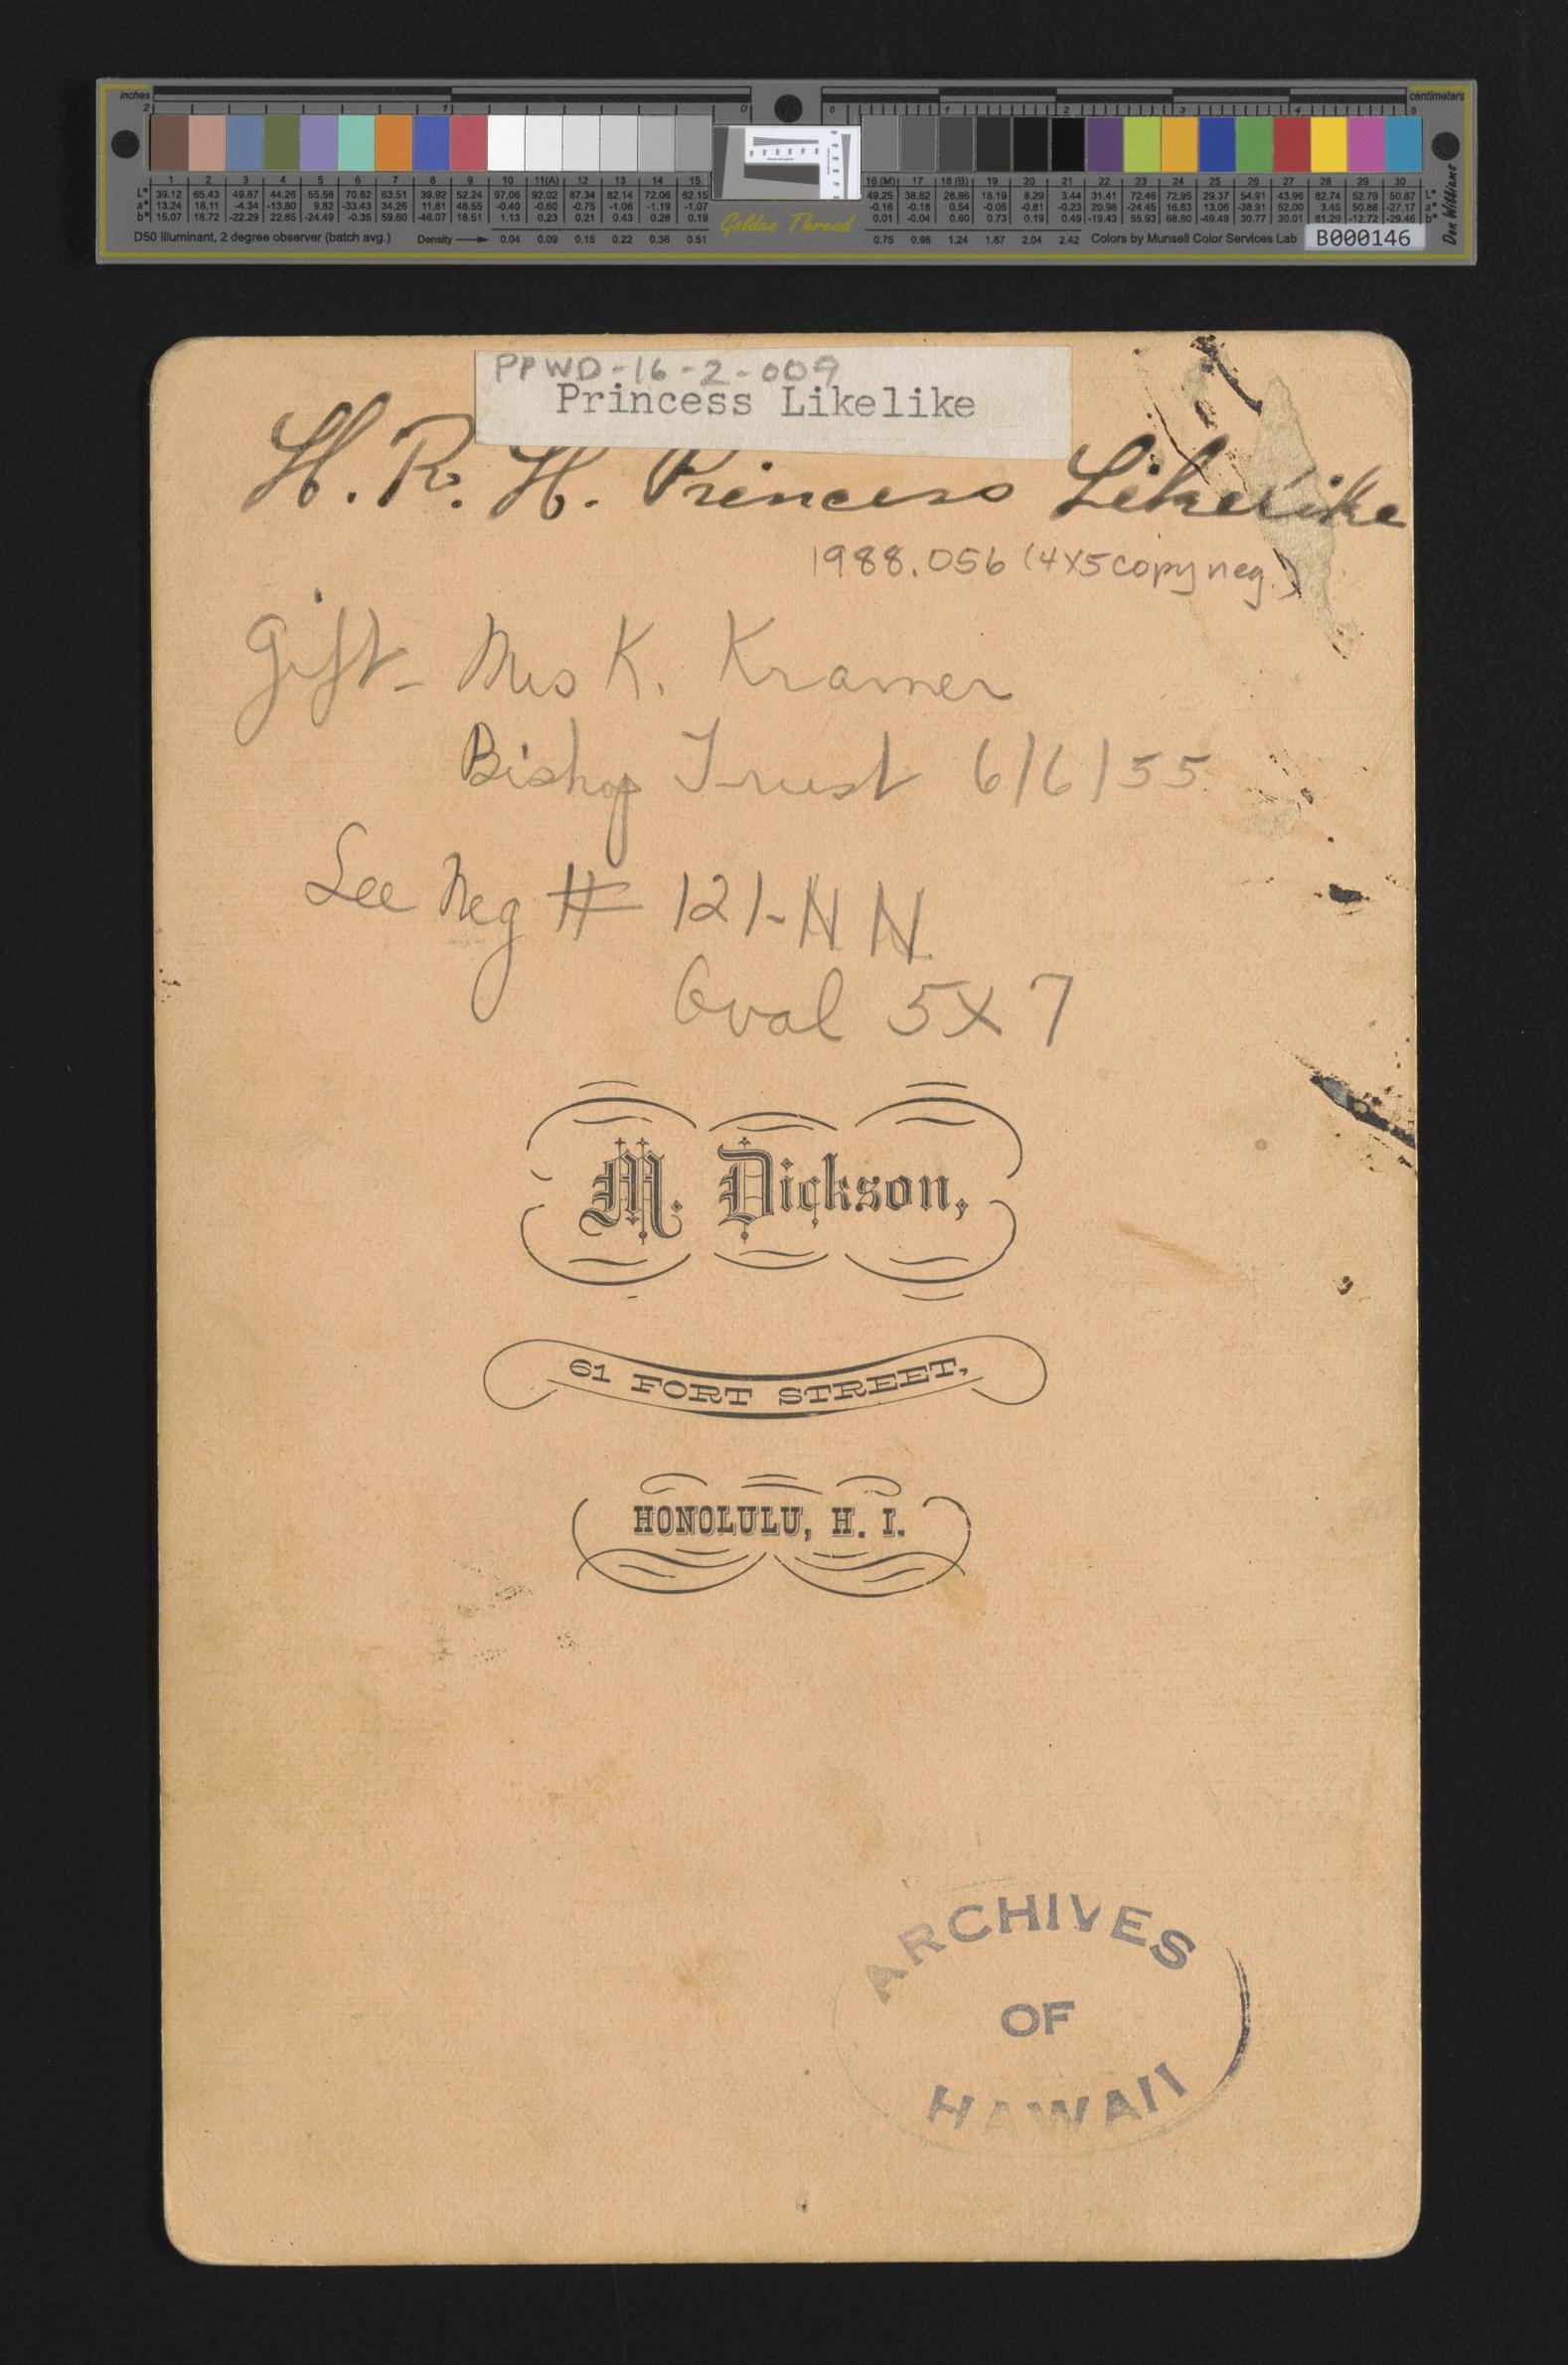 inches
centimeters
2 1 0 0 1 2 3 4 5
1 2 3 4 5 6 7 8 9 10 11(A) 12 13 14 15 16 (M) 17 18 (B) 19 20 21 22 23 24 25 26 27 28 29 30
L* 39.12 65.43 49.87 44.26 55.56 70.82 63.51 39.92 52.24 97.06 92.02 87.34 82.14 72.06 62.15 49.25 38.62 28.86 18.19 8.29 3.44 31.41 72.46 72.95 29.37 54.91 43.96 82.74 52.79 50.87 L*
a* 13.24 18.11 -4.34 -13.80 9.82 -33.43 34.26 11.81 48.55 -0.40 -0.60 -0.75 -1.06 -1.19 -1.07 -0.16 -0.18 0.54 -0.05 -0.81 -0.23 20.98 -24.45 16.83 13.06 -38.91 52.00 3.45 50.88 -27.17 a*
b* 15.07 18.72 -22.29 22.85 -24.49 -0.35 59.60 -46.07 18.51 1.13 0.23 0.21 0.43 0.28 0.19 0.01 -0.04 0.60 0.73 0.19 0.49 -19.43 55.93 68.80 -49.49 30.77 30.01 81.29 -12.72 -29.46 b*
D50 Illuminant, 2 degree observer (batch avg.) Density 0.04 0.09 0.15 0.22 0.36 0.51 Golden Thread 0.75 0.98 1.24 1.67 2.04 2.42 Colors by Munsell Color Services Lab B000146
Don Williams
PPWD-16-2-009
Princess Likelike
H. R. H. Princess Likelike
1988.056 (4X5 copy neg.)
Gift - Mrs K. Kramer
Bishop Trust 6/6/55
See Neg # 121-NN
Oval 5X7
M. Dickson,
61 FORT STREET,
HONOLULU, H. I.
ARCHIVES
OF
HAWAII